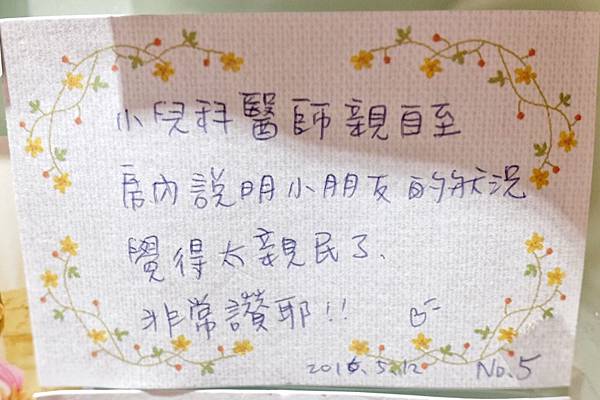 小兒科醫師親自至
房內說明小朋友的狀況
覺得太親民了、
非常讚耶!!
2016.5.12 No.5